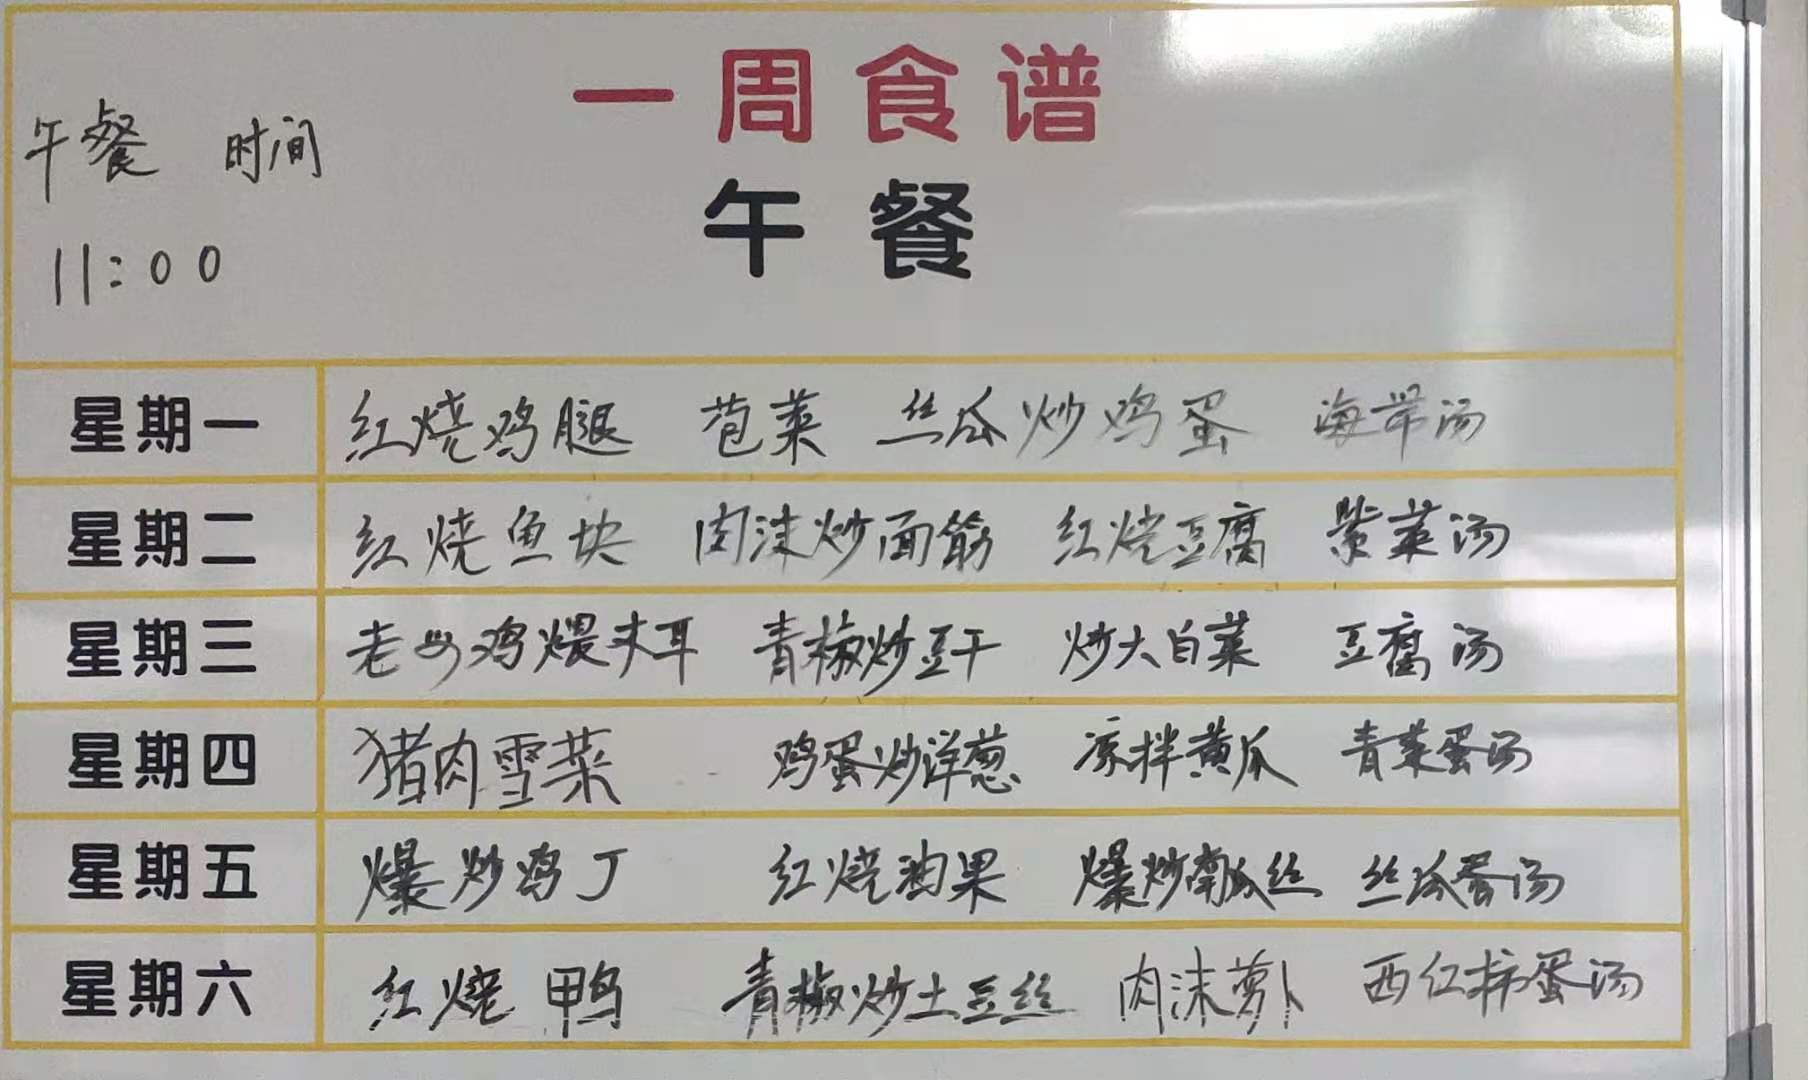 一周食谱
午餐 时间
午餐
11:00
星期一 红烧鸡腿 苞菜 丝瓜炒鸡蛋 海带汤
星期二 红烧鱼块 肉沫炒面筋 红烧豆腐 紫菜汤
星期三 老母鸡煨木耳 青椒炒豆干 炒大白菜 豆腐汤
星期四 猪肉雪菜 鸡蛋炒洋葱 凉拌黄瓜 青菜蛋汤
星期五 爆炒鸡丁 红烧油果 爆炒南瓜丝 丝瓜蛋汤
星期六 红烧鸭 青椒炒土豆丝 肉沫萝卜 西红柿蛋汤